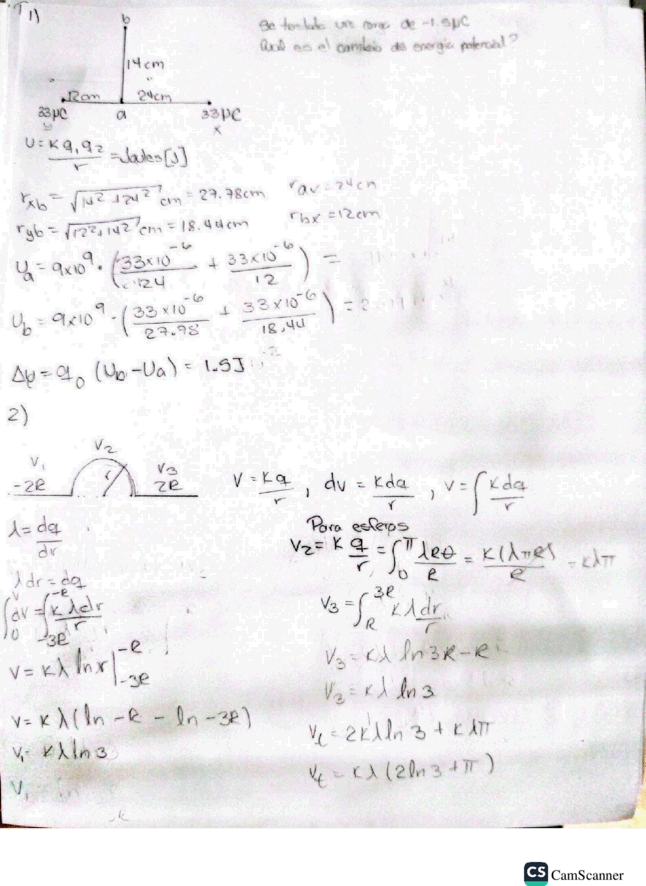 1)
b
Se traslada una carga de -1.5μC
Cuál es el cambio de energía potencial?
14cm
12cm
24cm
33μC
a
33μC
x
U = K q1 q2 / r = Joules [J]
r_xb = √(14² + 24²) cm = 27.78cm
r_yb = √(12² + 14²) cm = 18.44cm
r_bx = 12cm
U_a = 9x10⁹ · (33x10⁻⁶ / 24 + 33x10⁻⁶ / 12) =
U_b = 9x10⁹ · (33x10⁻⁶ / 27.78 + 33x10⁻⁶ / 18.44) =
q_0 (U_b - U_a) = 1.5J
2)
V1
V2
V3
-2R
r
2R
V = Kq / r , dv = K dq / r , v = ∫ K dq / r
λ = dq / dr
λ dr = dq
∫_0^V dv = ∫_-3R^-R K λ dr / r
V = Kλ ln r |_-3R^-R
V = Kλ (ln -R - ln -3R)
V1 = Kλ ln 3
V1
Para esferas
V2 = K q / r = ∫_0^π λRθ / R = K(λπR) / R = Kλπ
V3 = ∫_R^3R Kλ dr / r
V3 = Kλ ln 3R - R
V3 = Kλ ln 3
Vt = 2Kλ ln 3 + Kλπ
Vt = Kλ (2 ln 3 + π)
CS CamScanner